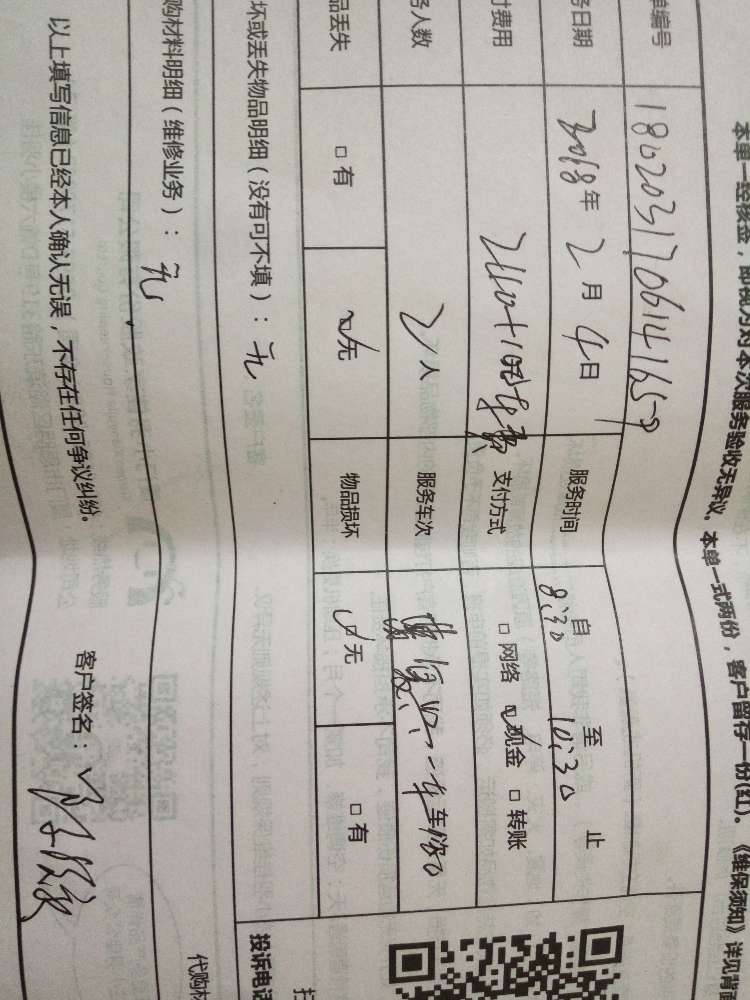 本单一经核金，即视为对本次服务验收无异议。本单一式两份，客户留存一份(红)。《维保须知》详见背面
单编号 180203170614165
务日期 2018年2月4日 服务时间 自8:30至10:30止
付费用 支付方式 □网络 ☑现金 □转账
务人数 2人 服务车次
品丢失 □有 ☑无 物品损坏 ☑无 □有
坏或丢失物品明细(没有可不填)：无
投诉电话
购材料明细(维修业务)：无
代购材
以上填写信息已经本人确认无误，不存在任何争议纠纷。 客户签名：